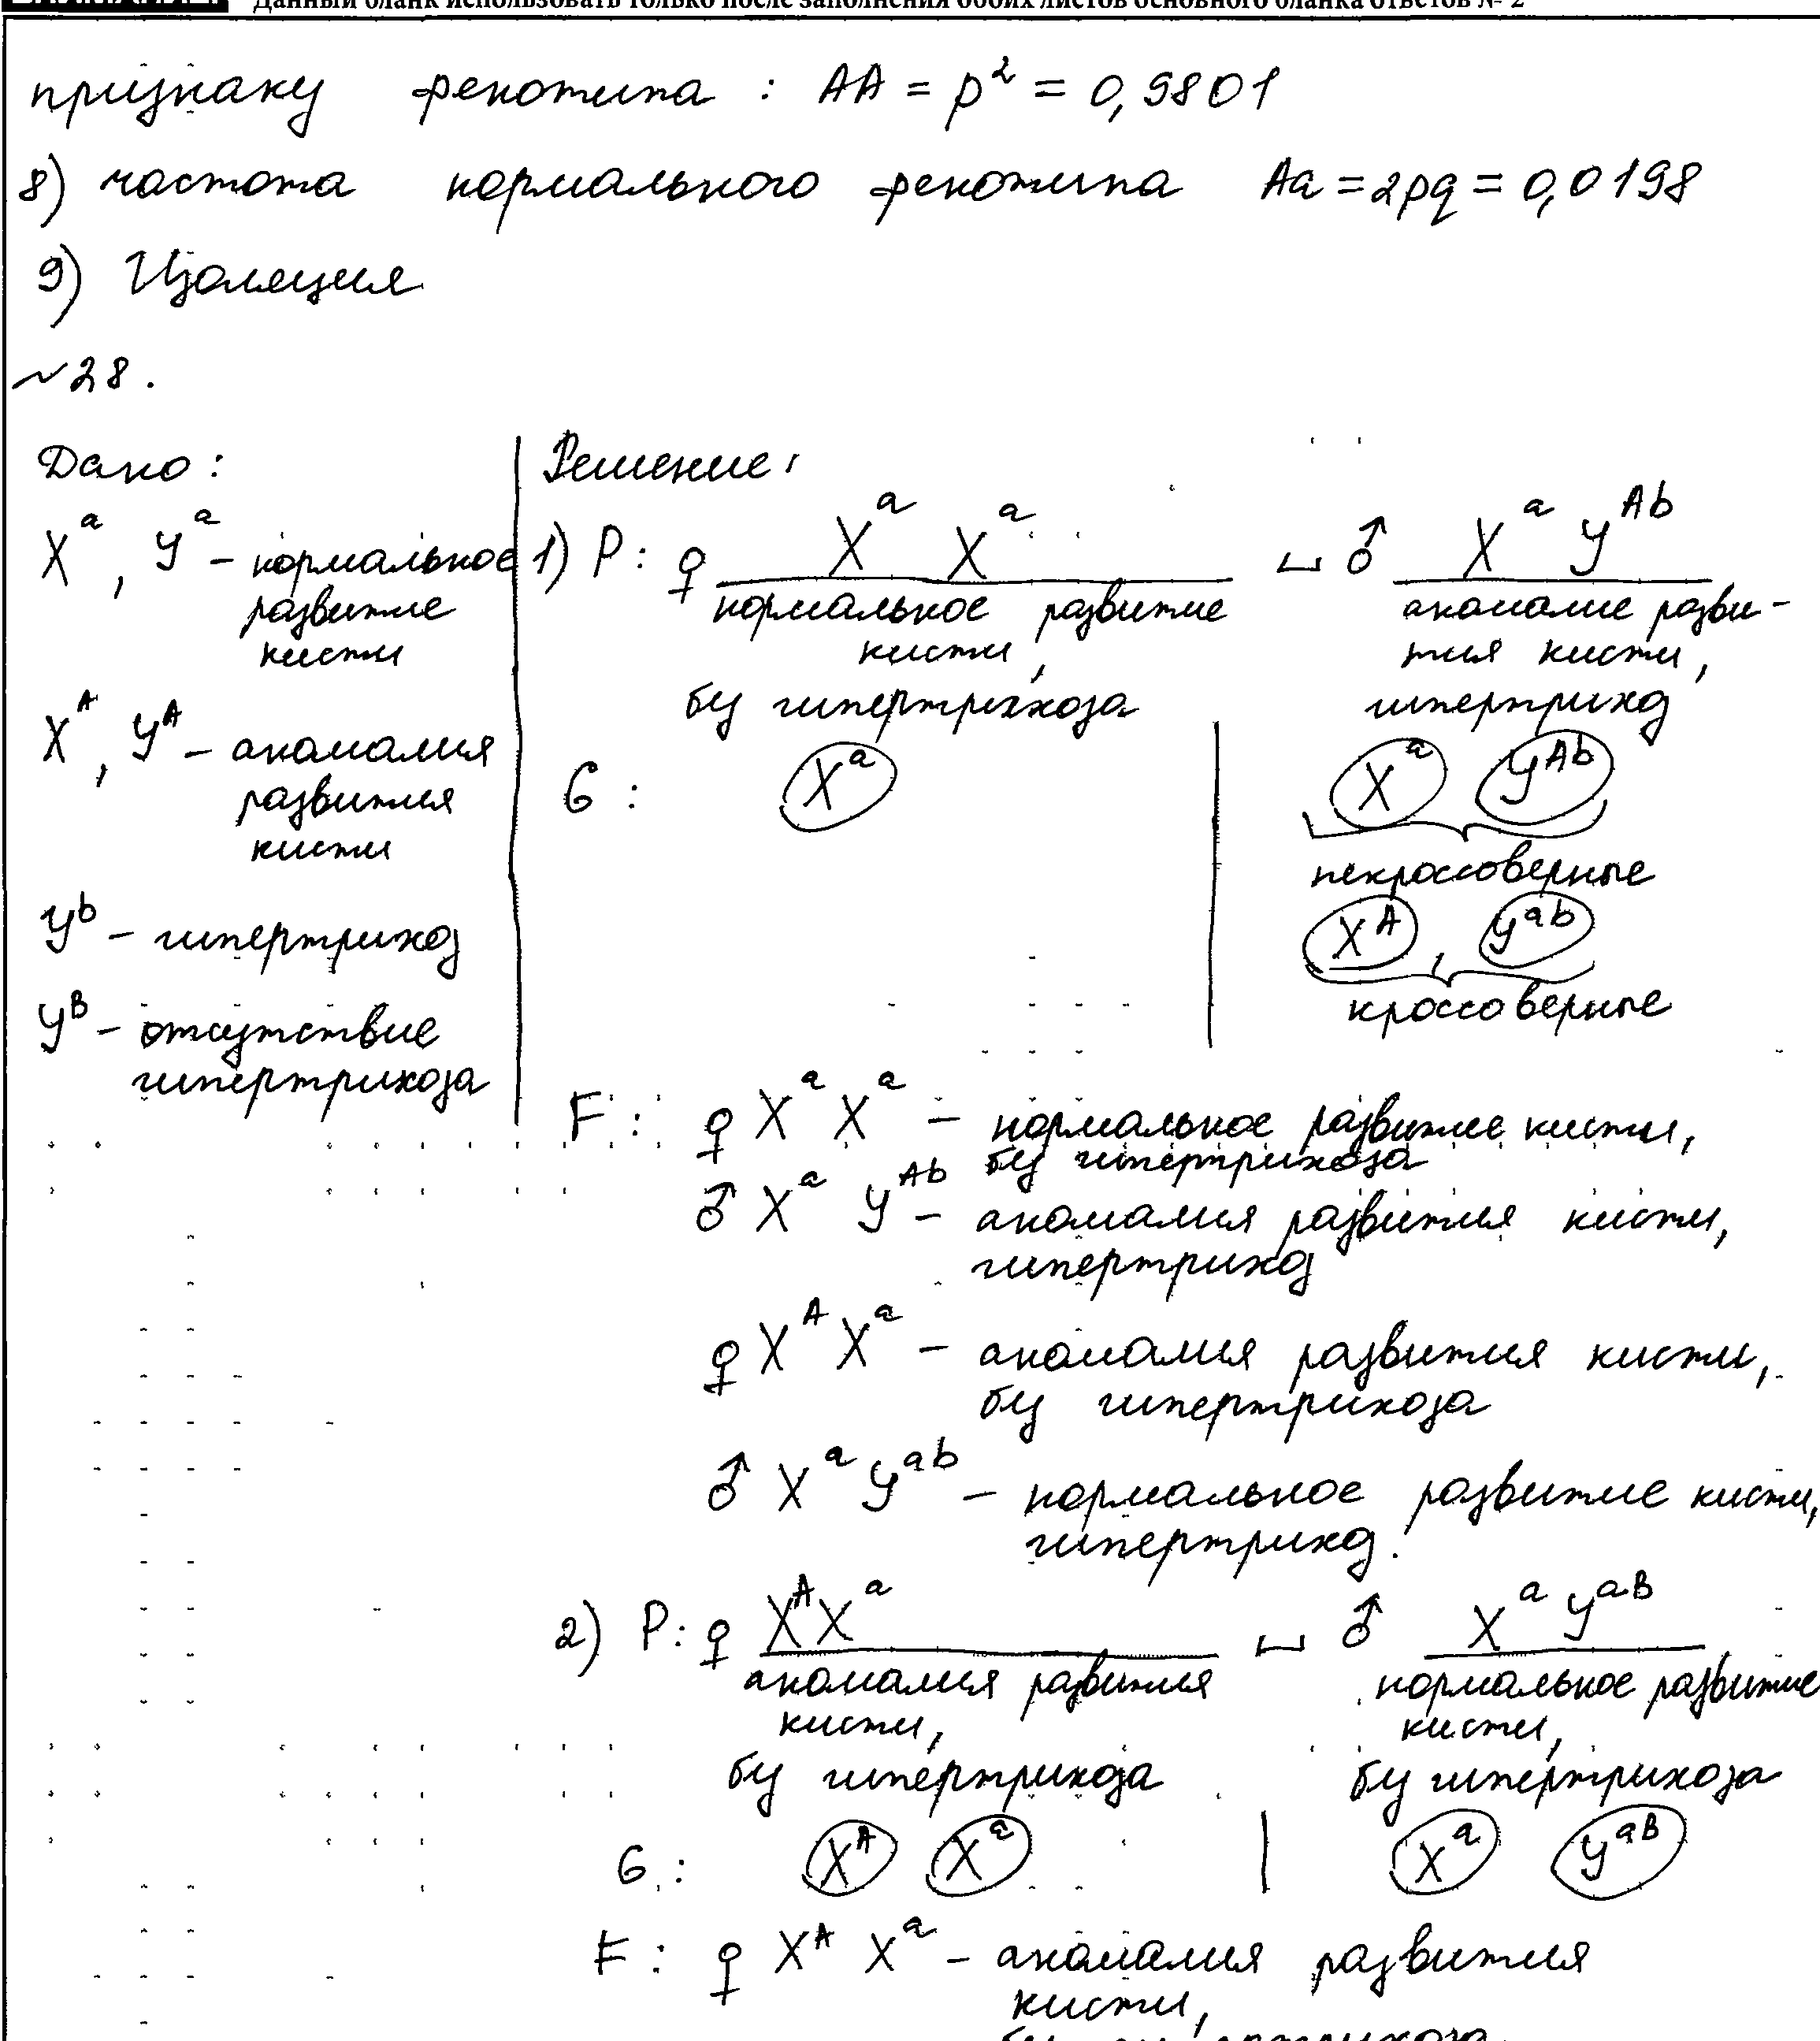 Данный бланк использовать только после заполнения обоих листов основного бланка ответов № 2
признаку фенотипа : AA = p² = 0,9801
8) частота нормального фенотипа Aa = 2pq = 0,0198
9) Изоляция
№28.
Дано:
X^a, Y^a – нормальное
развитие
кисти
X^A, Y^A – аномалия
развития
кисти
Y^b – гипертрихоз
Y^B – отсутствие
гипертрихоза
Решение:
1) P: ♀ X^a X^a × ♂ X^a Y^Ab
нормальное развитие аномалие разви-
кисти, тия кисти,
без гипертрихоза гипертрихоз
G : X^a | X^a Y^Ab
некроссоверные
X^A, Y^ab
кроссоверные
F: ♀ X^a X^a – нормальное развитие кисти,
без гипертрихоза
♂ X^a Y^Ab – аномалия развития кисти,
гипертрихоз
♀ X^A X^a – аномалия развития кисти,
без гипертрихоза
♂ X^a Y^ab – нормальное развитие кисти,
гипертрихоз.
2) P: ♀ X^A X^a × ♂ X^a Y^aB
аномалия развития нормальное развитие
кисти, кисти,
без гипертрихоза без гипертрихоза
G: X^A X^a | X^a Y^aB
F: ♀ X^A X^a – аномалия развития
кисти,
без гипертрихоза